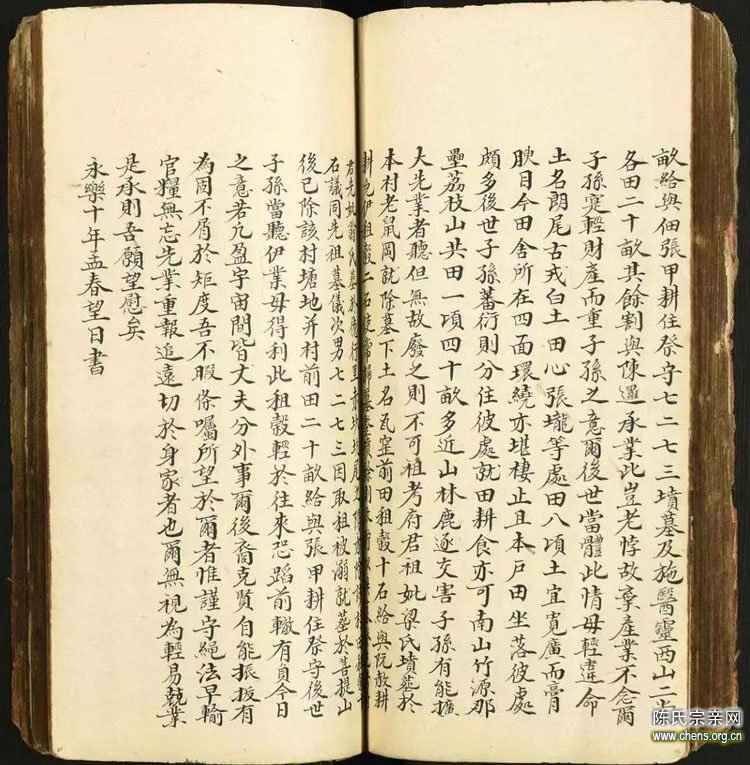 畝給與佃張甲耕住祭守七二七三墳墓及施醫靈西山二
各田二十畝其餘割與陳暹承業此豈老悖故棄產業不念爾
子孫寔輕財產而重子孫之意爾後世當體此情毋輕違命
土名朗尾古戎白土田心張壠等處田八頃土宜寬廣而膏
腴目今田舍所在四面環繞亦堪棲止且本戶田坐落彼處
頗多後世子孫蕃衍則分住彼處就田耕食亦可南山竹源那
壘荔枝山共田一頃四十畝多近山林鹿逐交害子孫有能擴
大先業者聽但無故廢之則不可祖考府君祖妣梁氏墳塋於
本村老鼠岡就除墓下土名瓦窰前田租穀十石給與阮敖耕
耕 伊租穀二石 墓
君先妣翁氏墓於
石議同先祖墓儀次男七二七三因取租被溺就葬於菩提山
後已除該村塘地并村前田二十畝給與張甲耕住祭守後世
子孫當聽伊業毋得利此租穀輕於往來恐蹈前轍有負今日
之意若亢盈宇宙間皆丈夫分外事爾後裔克賢自能振拔有
為固不屑於矩度吾不暇條囑所望於爾者惟謹守繩法早輸
官糧無忘先業重報追遠切於身家者也爾無視為輕易兢業
是承則吾願望慰矣
永樂十年孟春望日書
陈氏宗亲网
www.chens.org.cn